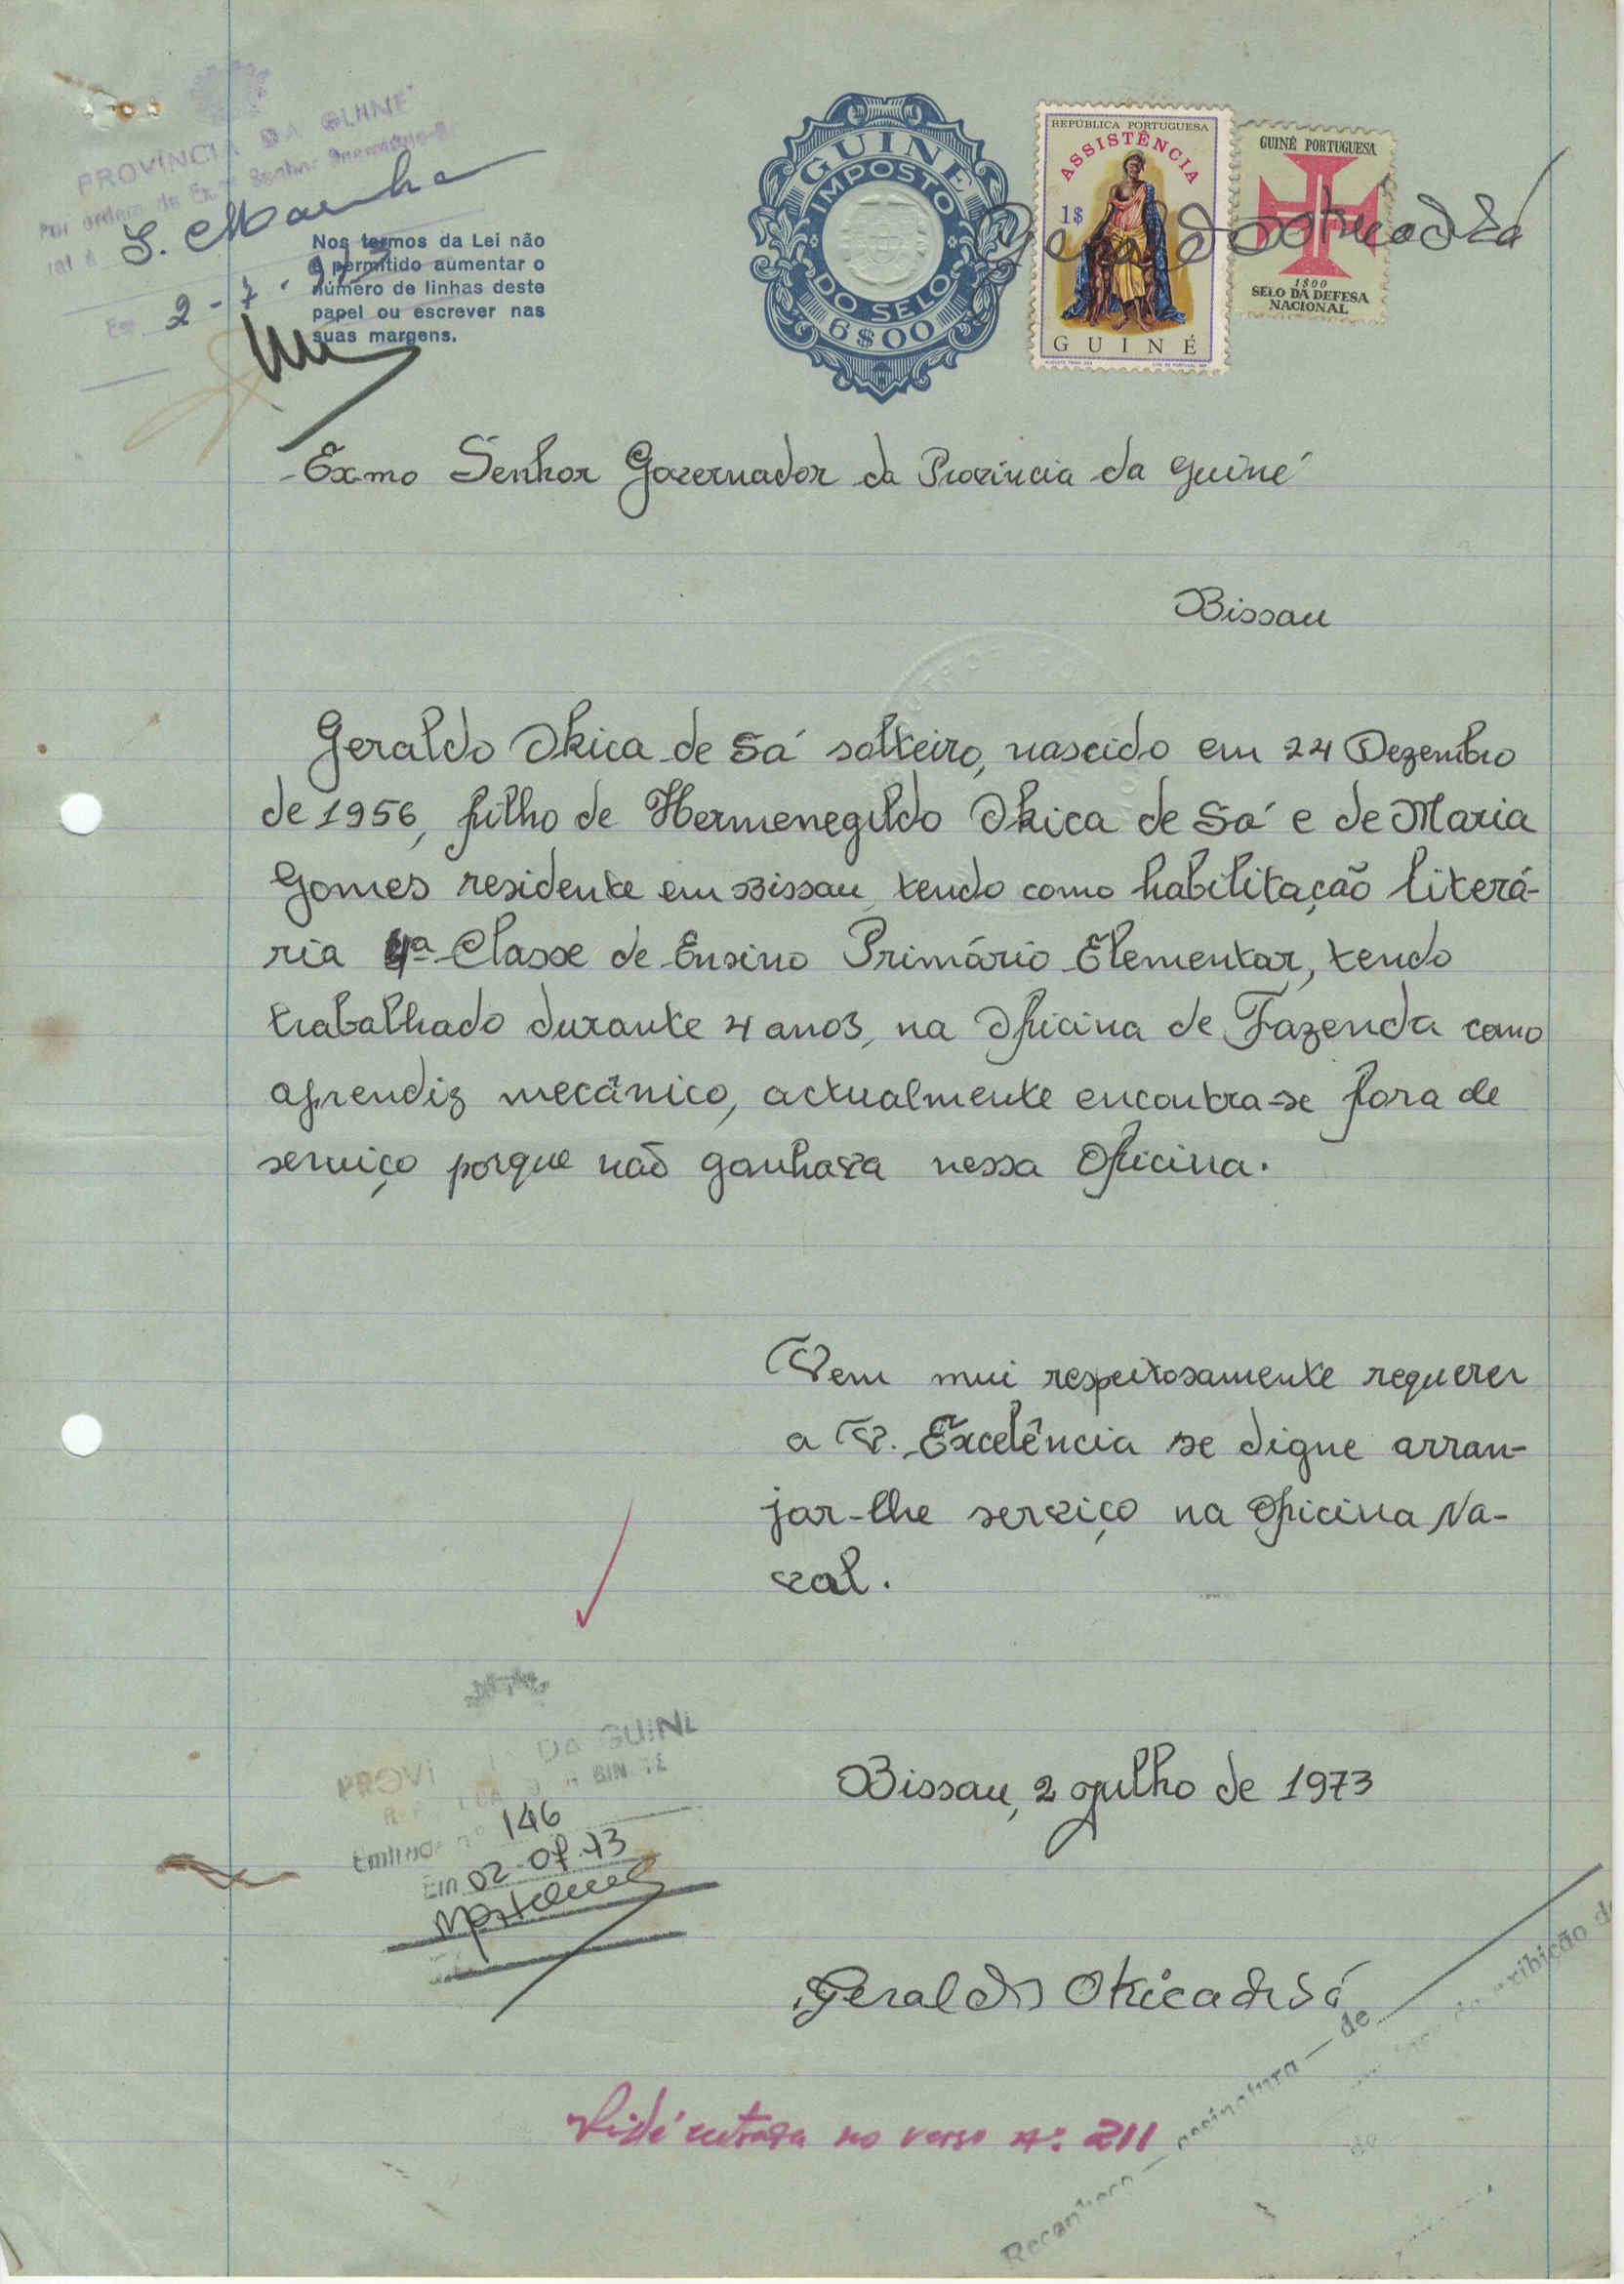 PROVÍNCIA DA GUINÉ
Por ordem de Ex.mo Senhor
S. Marinha
Em 2-7-973
Nos termos da Lei não
é permitido aumentar o
número de linhas deste
papel ou escrever nas
suas margens.
GUINÉ
IMPOSTO
DO SELO
6$00
REPÚBLICA PORTUGUESA
ASSISTÊNCIA
1$
GUINÉ
GUINÉ PORTUGUESA
1$00
SELO DA DEFESA
NACIONAL
Geraldo Okica de Sá
Exmo Senhor Governador da Província da Guiné
Bissau
Geraldo Okica de Sá solteiro, nascido em 24 Dezembro
de 1956, filho de Hermenegildo Okica de Sá e de Maria
Gomes residente em Bissau, tendo como habilitação literá-
ria 4ª Classe de Ensino Primário Elementar, tendo
trabalhado durante 4 anos, na Oficina de Fazenda como
aprendiz mecânico, actualmente encontra-se fora de
serviço porque não ganhava nessa Oficina.
Vem mui respeitosamente requerer
a V. Excelência se digne arran-
jar-lhe serviço na Oficina Na-
val.
PROVÍNCIA DA GUINÉ
Entrada nº 146
Em 02-07-73
Bissau, 2 Julho de 1973
Geraldo Okica de Sá
Vidé entrada no verso nº 211
Reconheço — assinatura — de
exibição do